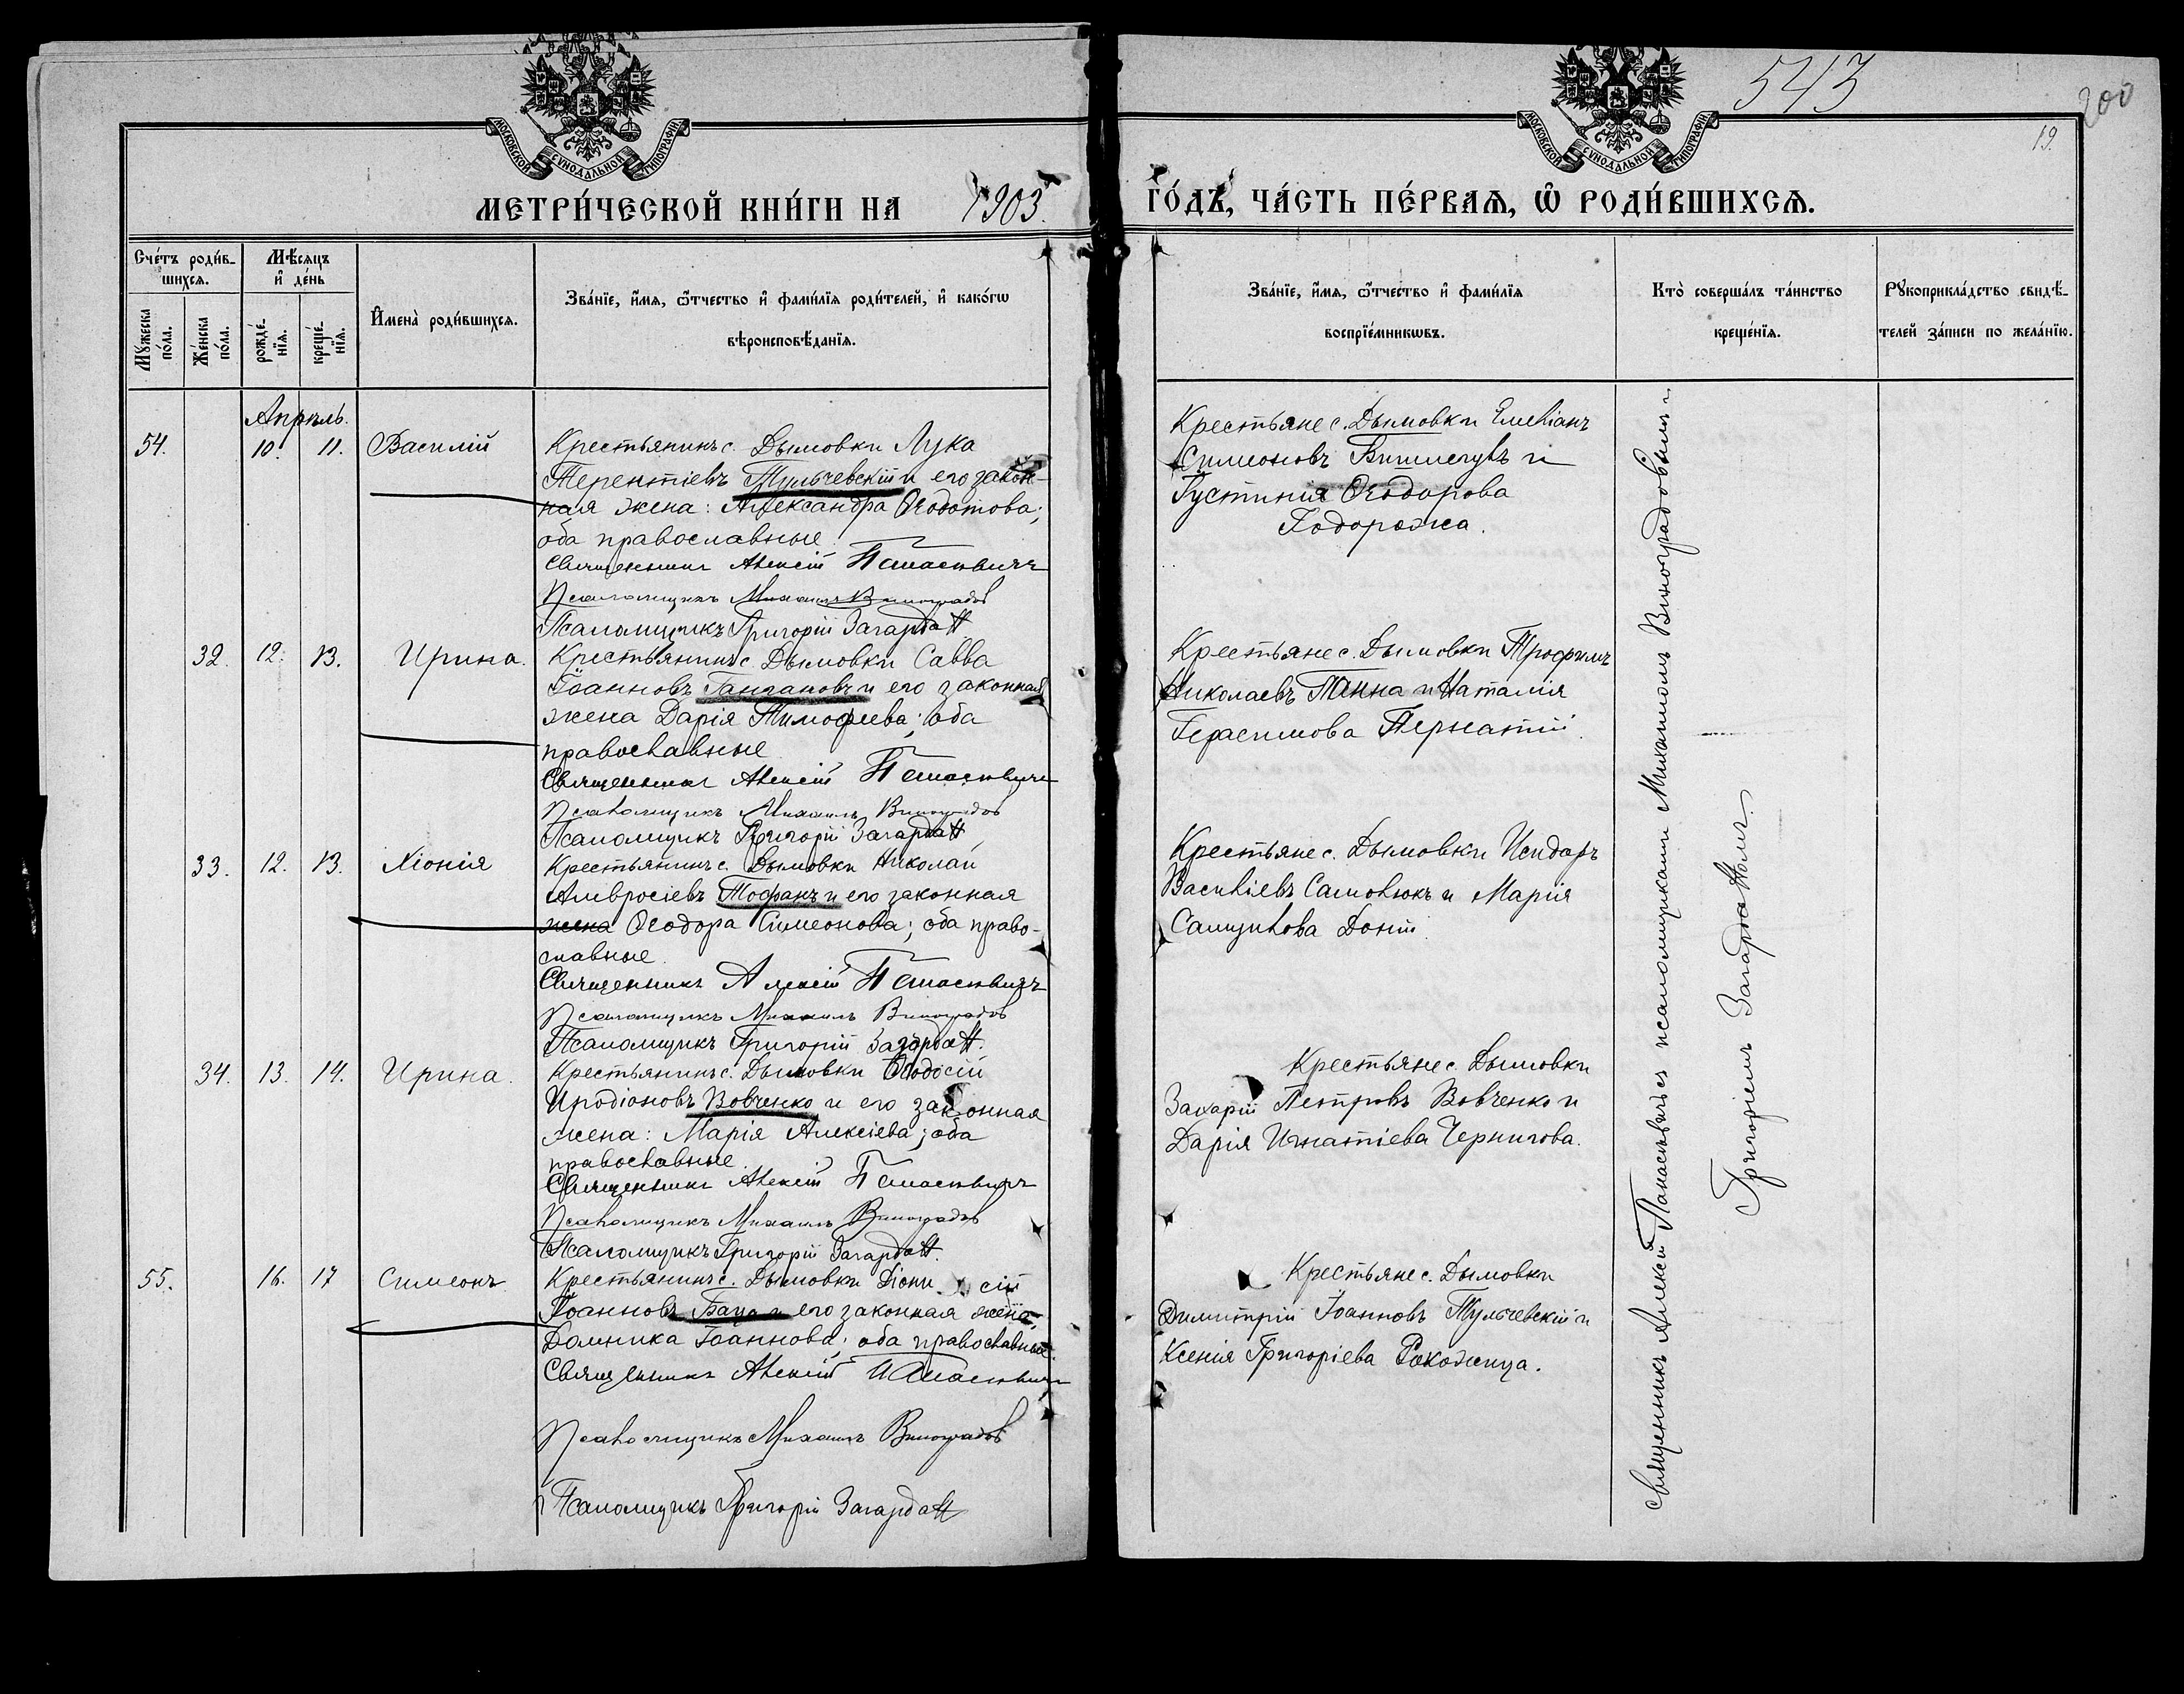 543
200
19.
МОСКОВСКОЙ СѴНОДАЛЬНОЙ ТИПОГРАФІИ
МОСКОВСКОЙ СѴНОДАЛЬНОЙ ТИПОГРАФІИ
МЕТРИ́ЧЕСКОЙ КНИ́ГИ НА 1903.
ГО́ДЪ, ЧА́СТЬ ПЕ́РВАѦ, Ѡ РОДИ́ВШИХСѦ.
Сче́тъ роди́в-
шихсѧ.
Мꙋ́жеска по́ла.
Же́нска по́ла.
Мѣ́сѧцъ
и҆ де́нь
рожде́-
нїѧ.
креще́-
нїѧ.
И҆мена̀ роди́вшихсѧ.
Зва́нїе, и҆́мѧ, ѻ҆́тчество и҆ фами́лїѧ роди́телей, и҆ како́гѡ
вѣроисповѣ́данїѧ.
Зва́нїе, и҆́мѧ, ѻ҆́тчество и҆ фами́лїѧ
воспрїе́мникѡвъ.
Кто̀ соверша́лъ та́инство
креще́нїѧ.
Рꙋкоприкла́дство свидѣ́-
телей за́писи по жела́нїю.
Апрѣль.
54. 10. 11. Василій
Крестьянинъ с. Дымовки Лука
Терентіевъ Тульчевскій и его закон-
ная жена: Александра Ѳеодотова;
оба православные.
Священникъ Алексій Панасевичъ
Псаломщикъ Михаилъ Виноградовъ
Псаломщикъ Григорій
Крестьяне с. Дымовки Емеліанъ
Симеоновъ и
Густинія Ѳеодорова
Тодорожа.
32. 12. 13. Ирина.
Крестьянинъ с. Дымовки Савва
Іоанновъ и его законная
жена Дарія Тимофеева; оба
православные
Священникъ Алексій Панасевичъ
Псаломщикъ Михаилъ Виноградовъ
Псаломщикъ Григорій
Крестьяне с. Дымовки Трофимъ
Николаевъ и Наталія
Герасимова
33. 12. 13. Хіонія
Крестьянинъ с. Дымовки Николай
Амвросіевъ Тофанъ и его законная
жена Ѳеодора Симеонова; оба право-
славные.
Священникъ Алексій Панасевичъ
Псаломщикъ Михаилъ Виноградовъ
Псаломщикъ Григорій
Крестьяне с. Дымовки Исидоръ
Василіевъ Самолюкъ и Марія
Самуилова Доній
34. 13. 14. Ирина.
Крестьянинъ с. Дымовки Ѳеодосій
Иродіоновъ Вовченко и его законная
жена: Марія Алексіева; оба
православные.
Священникъ Алексій Панасевичъ
Псаломщикъ Михаилъ Виноградовъ
Псаломщикъ Григорій
Крестьяне с. Дымовки
Захарій Петровъ Вовченко и
Дарія Игнатіева Чернигова.
55. 16. 17 Симеонъ
Крестьянинъ с. Дымовки Діонисій
Іоанновъ Баца и его законная жена
Домника Іоаннова; оба православные.
Священникъ Алексій Панасевичъ
Псаломщикъ Михаилъ Виноградовъ
Псаломщикъ Григорій
Крестьяне с. Дымовки
Димитрій Іоанновъ Тульчевскій и
Ксенія Григоріева
Священникъ Алексій Панасевичъ съ псаломщиками Михаиломъ Виноградовымъ и
Григоріемъ